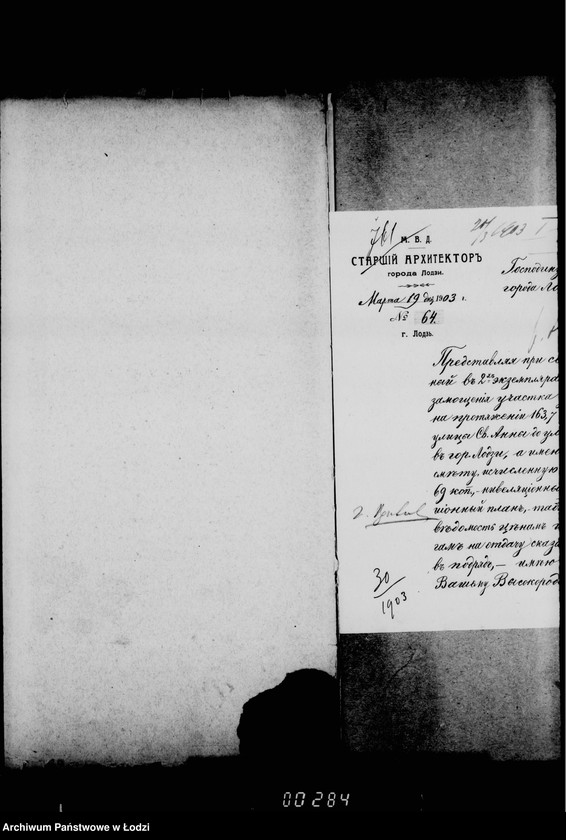 761
М. В. Д.
СТАРШІЙ АРХИТЕКТОРЪ
города Лодзи.
Марта 19 дня 1903 г.
№ 64.
г. Лодзь.
1903 I
Господину
города Ло
Представляя при се
ный въ 2хъ экземпляра
замощенія участка
на протяженіи 163,7
улицы Св. Анны до ул
въ гор. Лодзи, а имен
смѣту, исчисленную
69 коп., нивеляціонны
ціонный планъ, таб
вѣдомость цѣнамъ и
гамъ на отдачу сказа
въ подрядъ, — имѣю
Вашему Высокород
30
1903
00284
Archiwum Państwowe w Łodzi